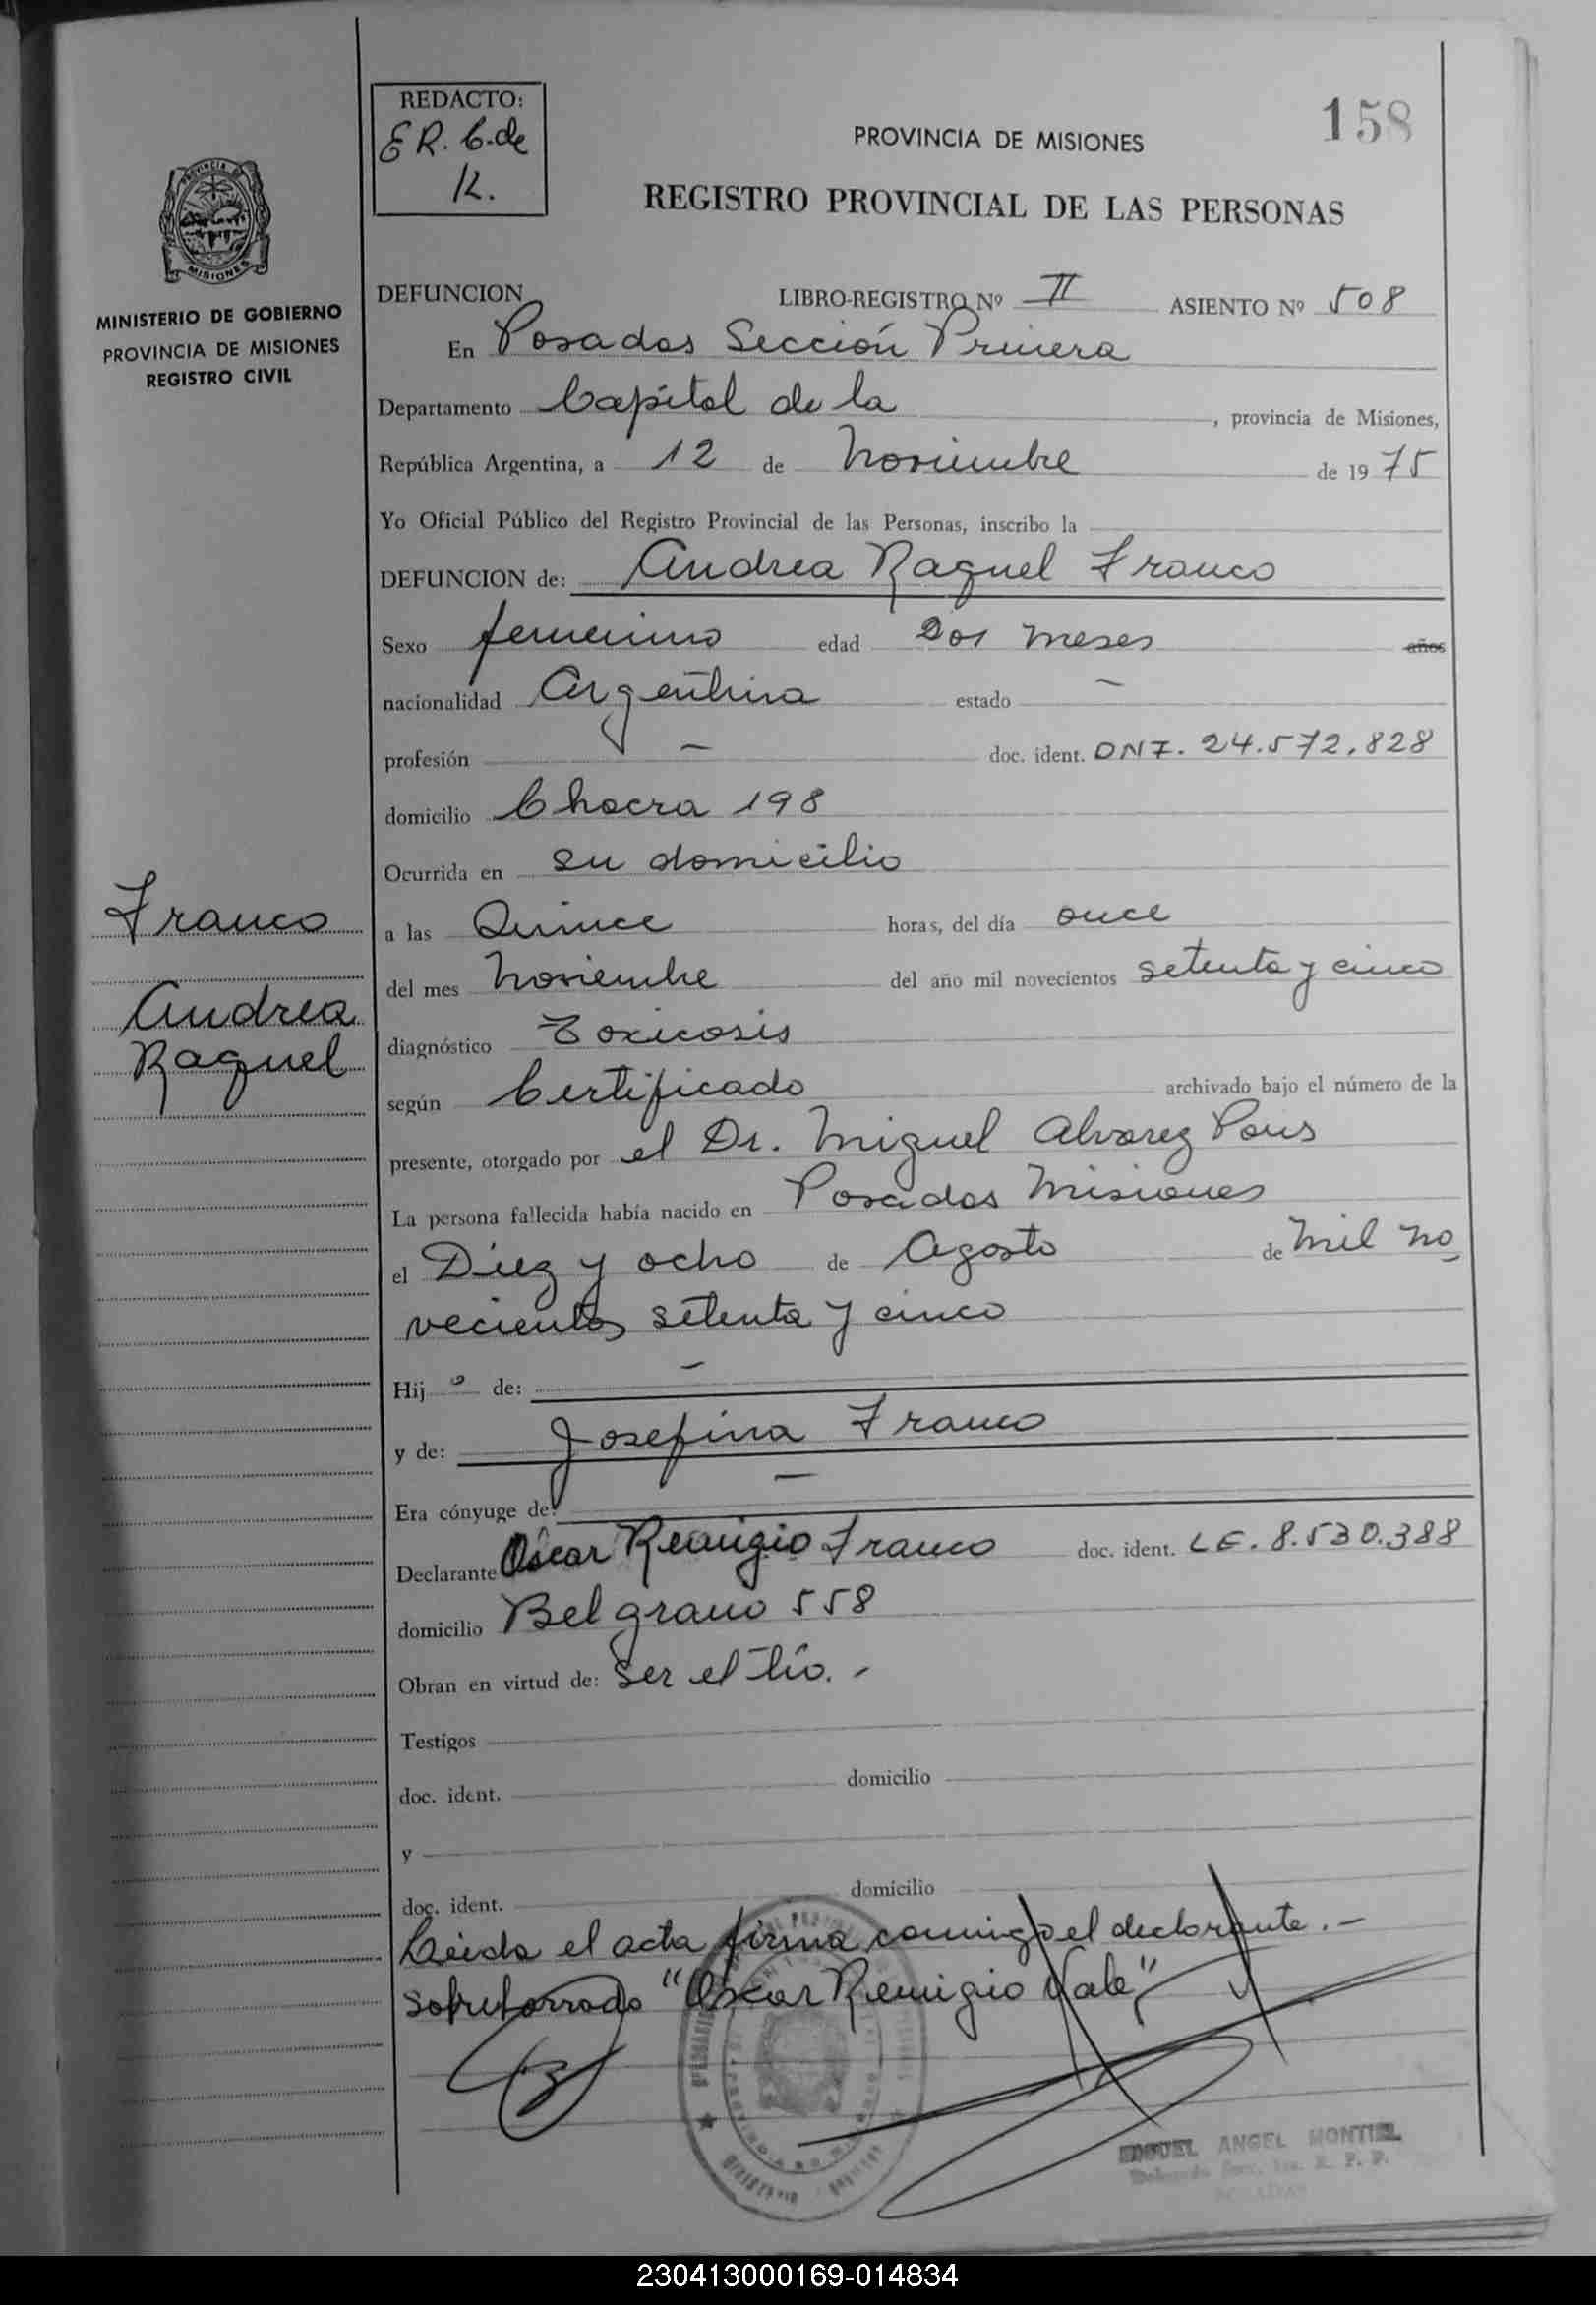 REDACTO:
E R. C. de
K.
158
PROVINCIA DE MISIONES
REGISTRO PROVINCIAL DE LAS PERSONAS
MISIONES
MINISTERIO DE GOBIERNO
PROVINCIA DE MISIONES
REGISTRO CIVIL
DEFUNCION LIBRO-REGISTRO Nº II ASIENTO Nº 508
En Posadas Sección Primera
Departamento Capital de la , provincia de Misiones,
República Argentina, a 12 de Noviembre de 1975
Yo Oficial Público del Registro Provincial de las Personas, inscribo la
DEFUNCION de: Andrea Raquel Franco
Sexo femenino edad Dos meses años
nacionalidad Argentina estado –
profesión – doc. ident. DNI. 24.572.828
domicilio Chacra 198
Ocurrida en su domicilio
Franco
Andrea
Raquel
a las Quince horas, del día once
del mes Noviembre del año mil novecientos setenta y cinco
diagnóstico Toxicosis
según Certificado archivado bajo el número de la
presente, otorgado por el Dr. Miguel Alvarez Pons
La persona fallecida había nacido en Posadas Misiones
el Diez y ocho de Agosto de mil no
vecientos setenta y cinco
Hija de: –
y de: Josefina Franco
Era cónyuge de: –
Declarante Oscar Remigio Franco doc. ident. LE. 8.530.388
domicilio Belgrano 558
Obran en virtud de: Ser el tío. -
Testigos
doc. ident. domicilio
y
doc. ident. domicilio
Leida el acta firma conmigo el declarante. -
sobreborrado "Oscar Remigio Vale"
MIGUEL ANGEL MONTIEL
230413000169-014834